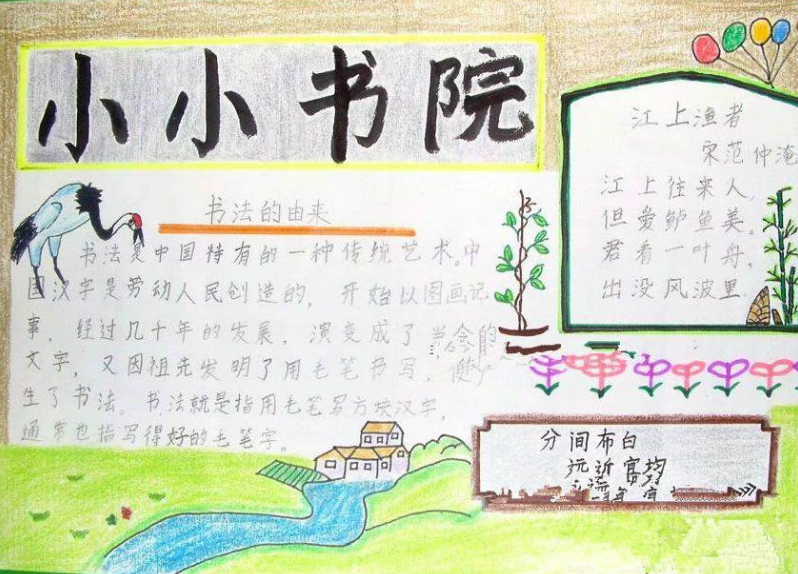 小小书院
书法的由来
书法是中国特有的一种传统艺术。中
国汉字是劳动人民创造的，开始以图画记
事，经过几千年的发展，演变成了
文字，又因祖先发明了用毛笔书写，便产
生了书法。书法就是指用毛笔写方块汉字，
通常也指写得好的毛笔字。
江上渔者
宋范仲淹
江上往来人，
但爱鲈鱼美。
君看一叶舟，
出没风波里。
分间布白
远近宜均